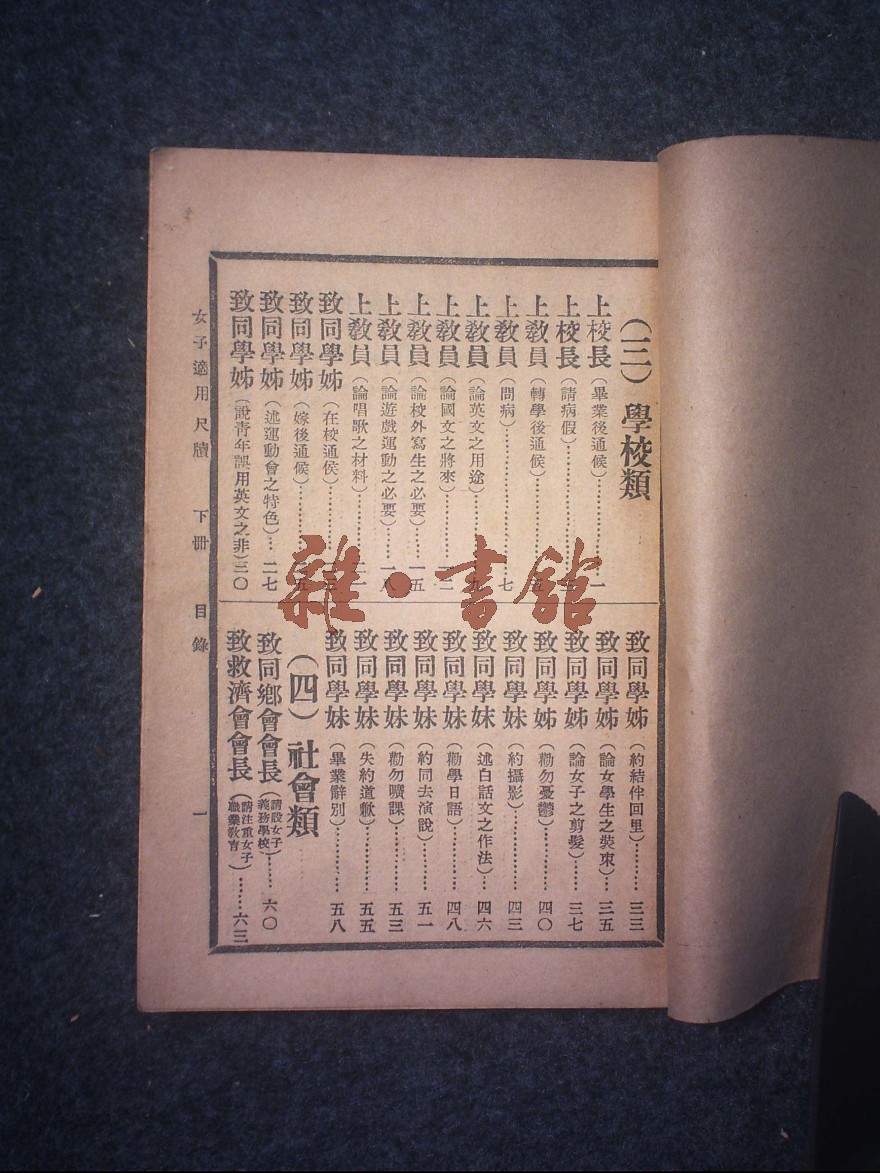 (三) 學校類
上校長(畢業後通候)…………一
上校長(請病假)…………
上教員(轉學後通候)…………五
上教員(問病)…………七
上教員(論英文之用途)…………九
上教員(論國文之將來)…………一二
上教員(論校外寫生之必要)……一五
上教員(論遊戲運動之必要)……一八
上教員(論唱歌之材料)…………二一
致同學姊(在校通侯)…………
致同學姊(嫁後通候)…………五
致同學姊(述運動會之特色)…二七
致同學姊(說青年誤用英文之非)三〇
致同學姊(約結伴回里)…………三三
致同學姊(論女學生之裝束)…三五
致同學姊(論女子之剪髮)……三七
致同學姊(勸勿憂鬱)…………四〇
致同學妹(約攝影)…………四三
致同學妹(述白話文之作法)…四六
致同學妹(勸學日語)…………四八
致同學妹(約同去演說)…………五一
致同學妹(勸勿曠課)…………五三
致同學妹(失約道歉)…………五五
致同學妹(畢業辭別)…………五八
(四) 社會類
致同鄉會會長(請設女子義務學校)……六〇
致救濟會會長(請注重女子職業教育)……六三
女子適用尺牘 下冊 目錄 一
雜·書館